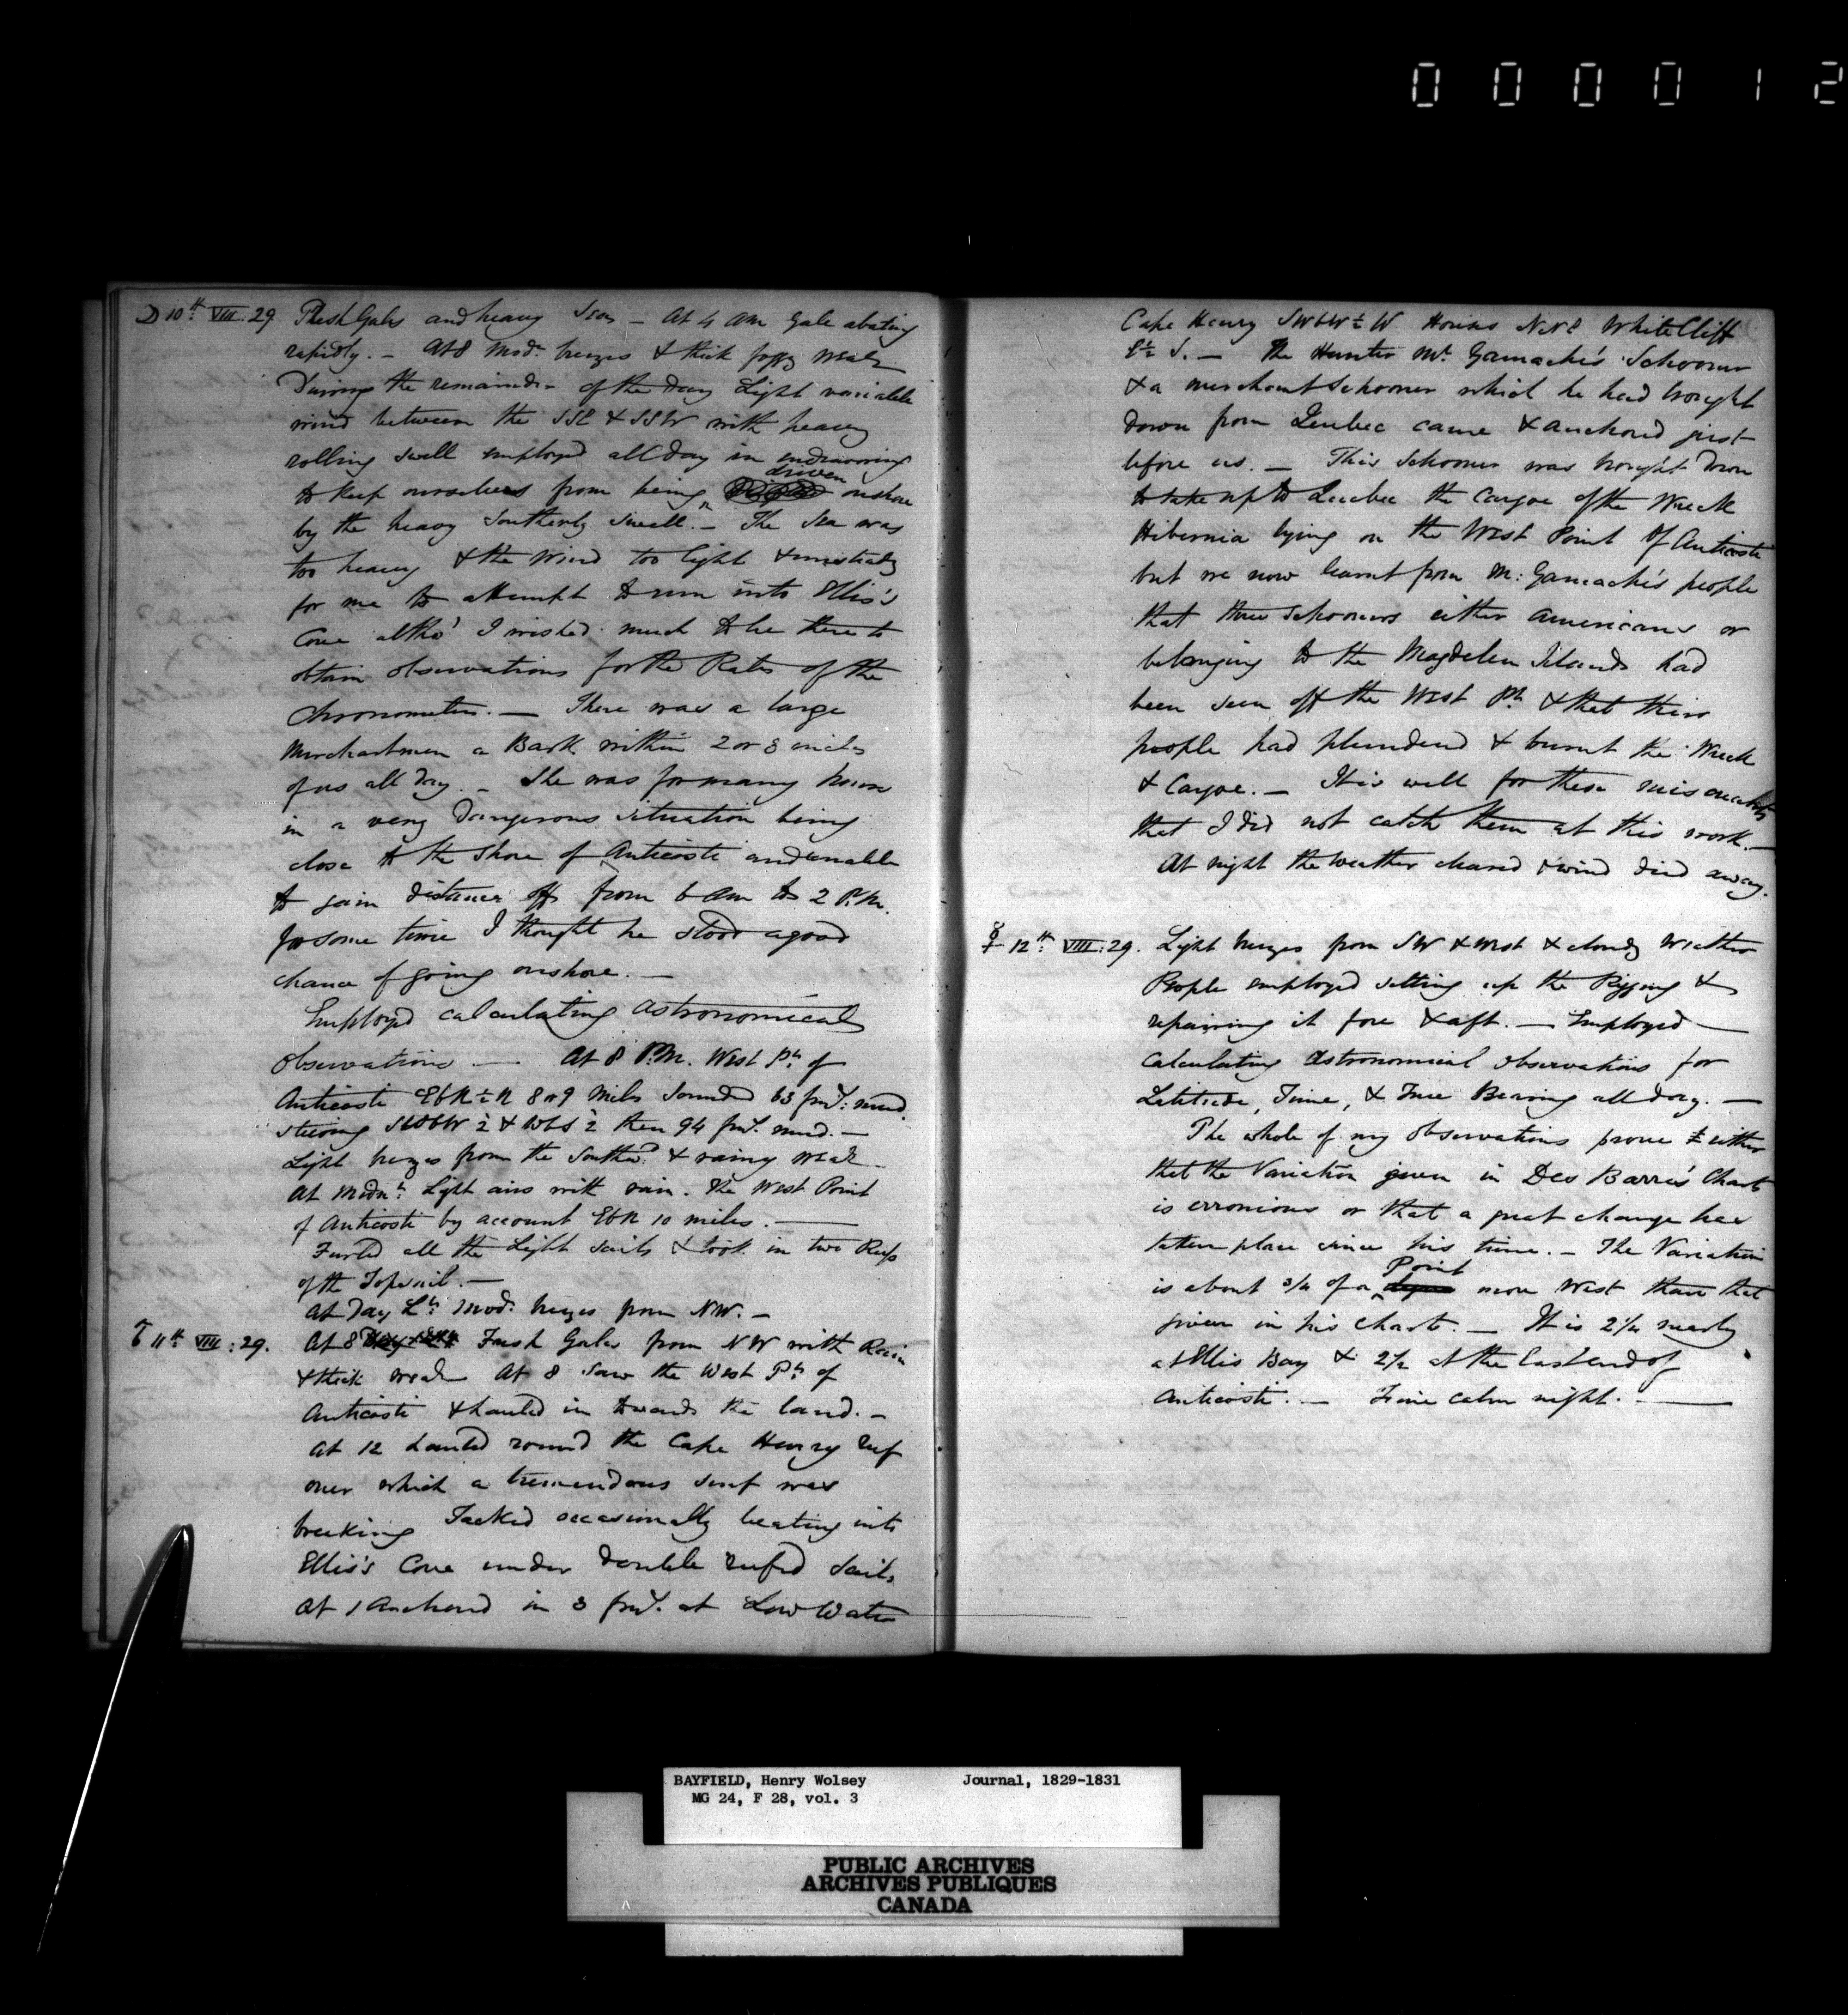 000012
☽ 10th VIII. 29 Fresh Gales and heavy Sea - At 4 AM Gale abating
rapidly. - At 8 Modr. breezes & thick foggy wear
During the remainder of the day Light variable
wind between the SSE & SSW with heavy
rolling swell employed all day in endeavoring
to keep ourselves from being driven onshore
by the heavy Southerly Swell. - The Sea was
too heavy & the Wind too light & unsteady
for me to attempt to run into Ellis's
Cove altho' I wished much to be there to
obtain observations for the Rates of the
Chronometers. — There was a large
Merchantman a Bark within 2 or 3 miles
of us all day. - She was for many hours
in a very dangerous situation being
close to the Shore of Anticosti and unable
to gain distance off from 6 am to 2 P.M.
for some time I thought he stood a good
chance of going onshore. —
Employed calculating Astronomical
Observations — At 8 P.M. West Pt. of
Anticosti EbN½N 8 or 9 Miles Sounded 63 fms. mud
steering SWbW ½ & WbS ½ then 94 fms. mud. —
Light breezes from the Southwd. & rainy wear
At Midnt. Light airs with rain. The West Point
of Anticosti by account EbN 10 miles. —
Furled all the Light Sails & took in two Reefs
of the Topsail. —
At Day Lt. Modr. breezes from NW. -
11th VIII: 29. At 8 Fresh Gales from NW with Rain
& thick wear At 8 Saw the West Pt. of
Anticosti & hauled in towards the land. -
At 12 hauled round the Cape Henry reef
over which a tremendous surf was
breaking Tacked occasionally beating into
Ellis's Cove under double reefed Sails
At 1 Anchored in 3 fms. at Low Water
Cape Henry SWbW½W Houses NNE White Cliff
E½S. — The Hunter Mr. Gamache's Schooner
& a merchant schooner which he had brought
down from Quebec came & anchored just
before us. — This Schooner was brought down
to take up to Quebec the Cargoe of the Wreck
Hibernia lying on the West Point of Anticosti
but we now learnt from M: Gamache's people
that three schooners either Americans or
belonging to the Magdelen Islands had
been seen off the West Pt. & that their
people had plundered & burnt the Wreck
& Cargoe. — It is well for these miscreants
that I did not catch them at this work. —
At night the weather cleared & wind died away.
☿ 12th VIII: 29. Light breezes from SW & West & cloudy weather
People employed setting up the Rigging &
repairing it fore & aft. — Employed —
Calculating Astronomical observations for
Latitude, Time, & True Bearing all day. —
The whole of my observations prove either
that the Variation given in Des Barre's Chart
is erronious or that a great change has
taken place since his time. — The Variation
is about 3/4 of a Point more West than that
given in his Charts. — It is 2 1/4 nearly
at Ellis Bay & 2 1/2 at the East end of
Anticosti. — Fine calm night. —
BAYFIELD, Henry Wolsey Journal, 1829-1831
MG 24, F 28, vol. 3
PUBLIC ARCHIVES
ARCHIVES PUBLIQUES
CANADA